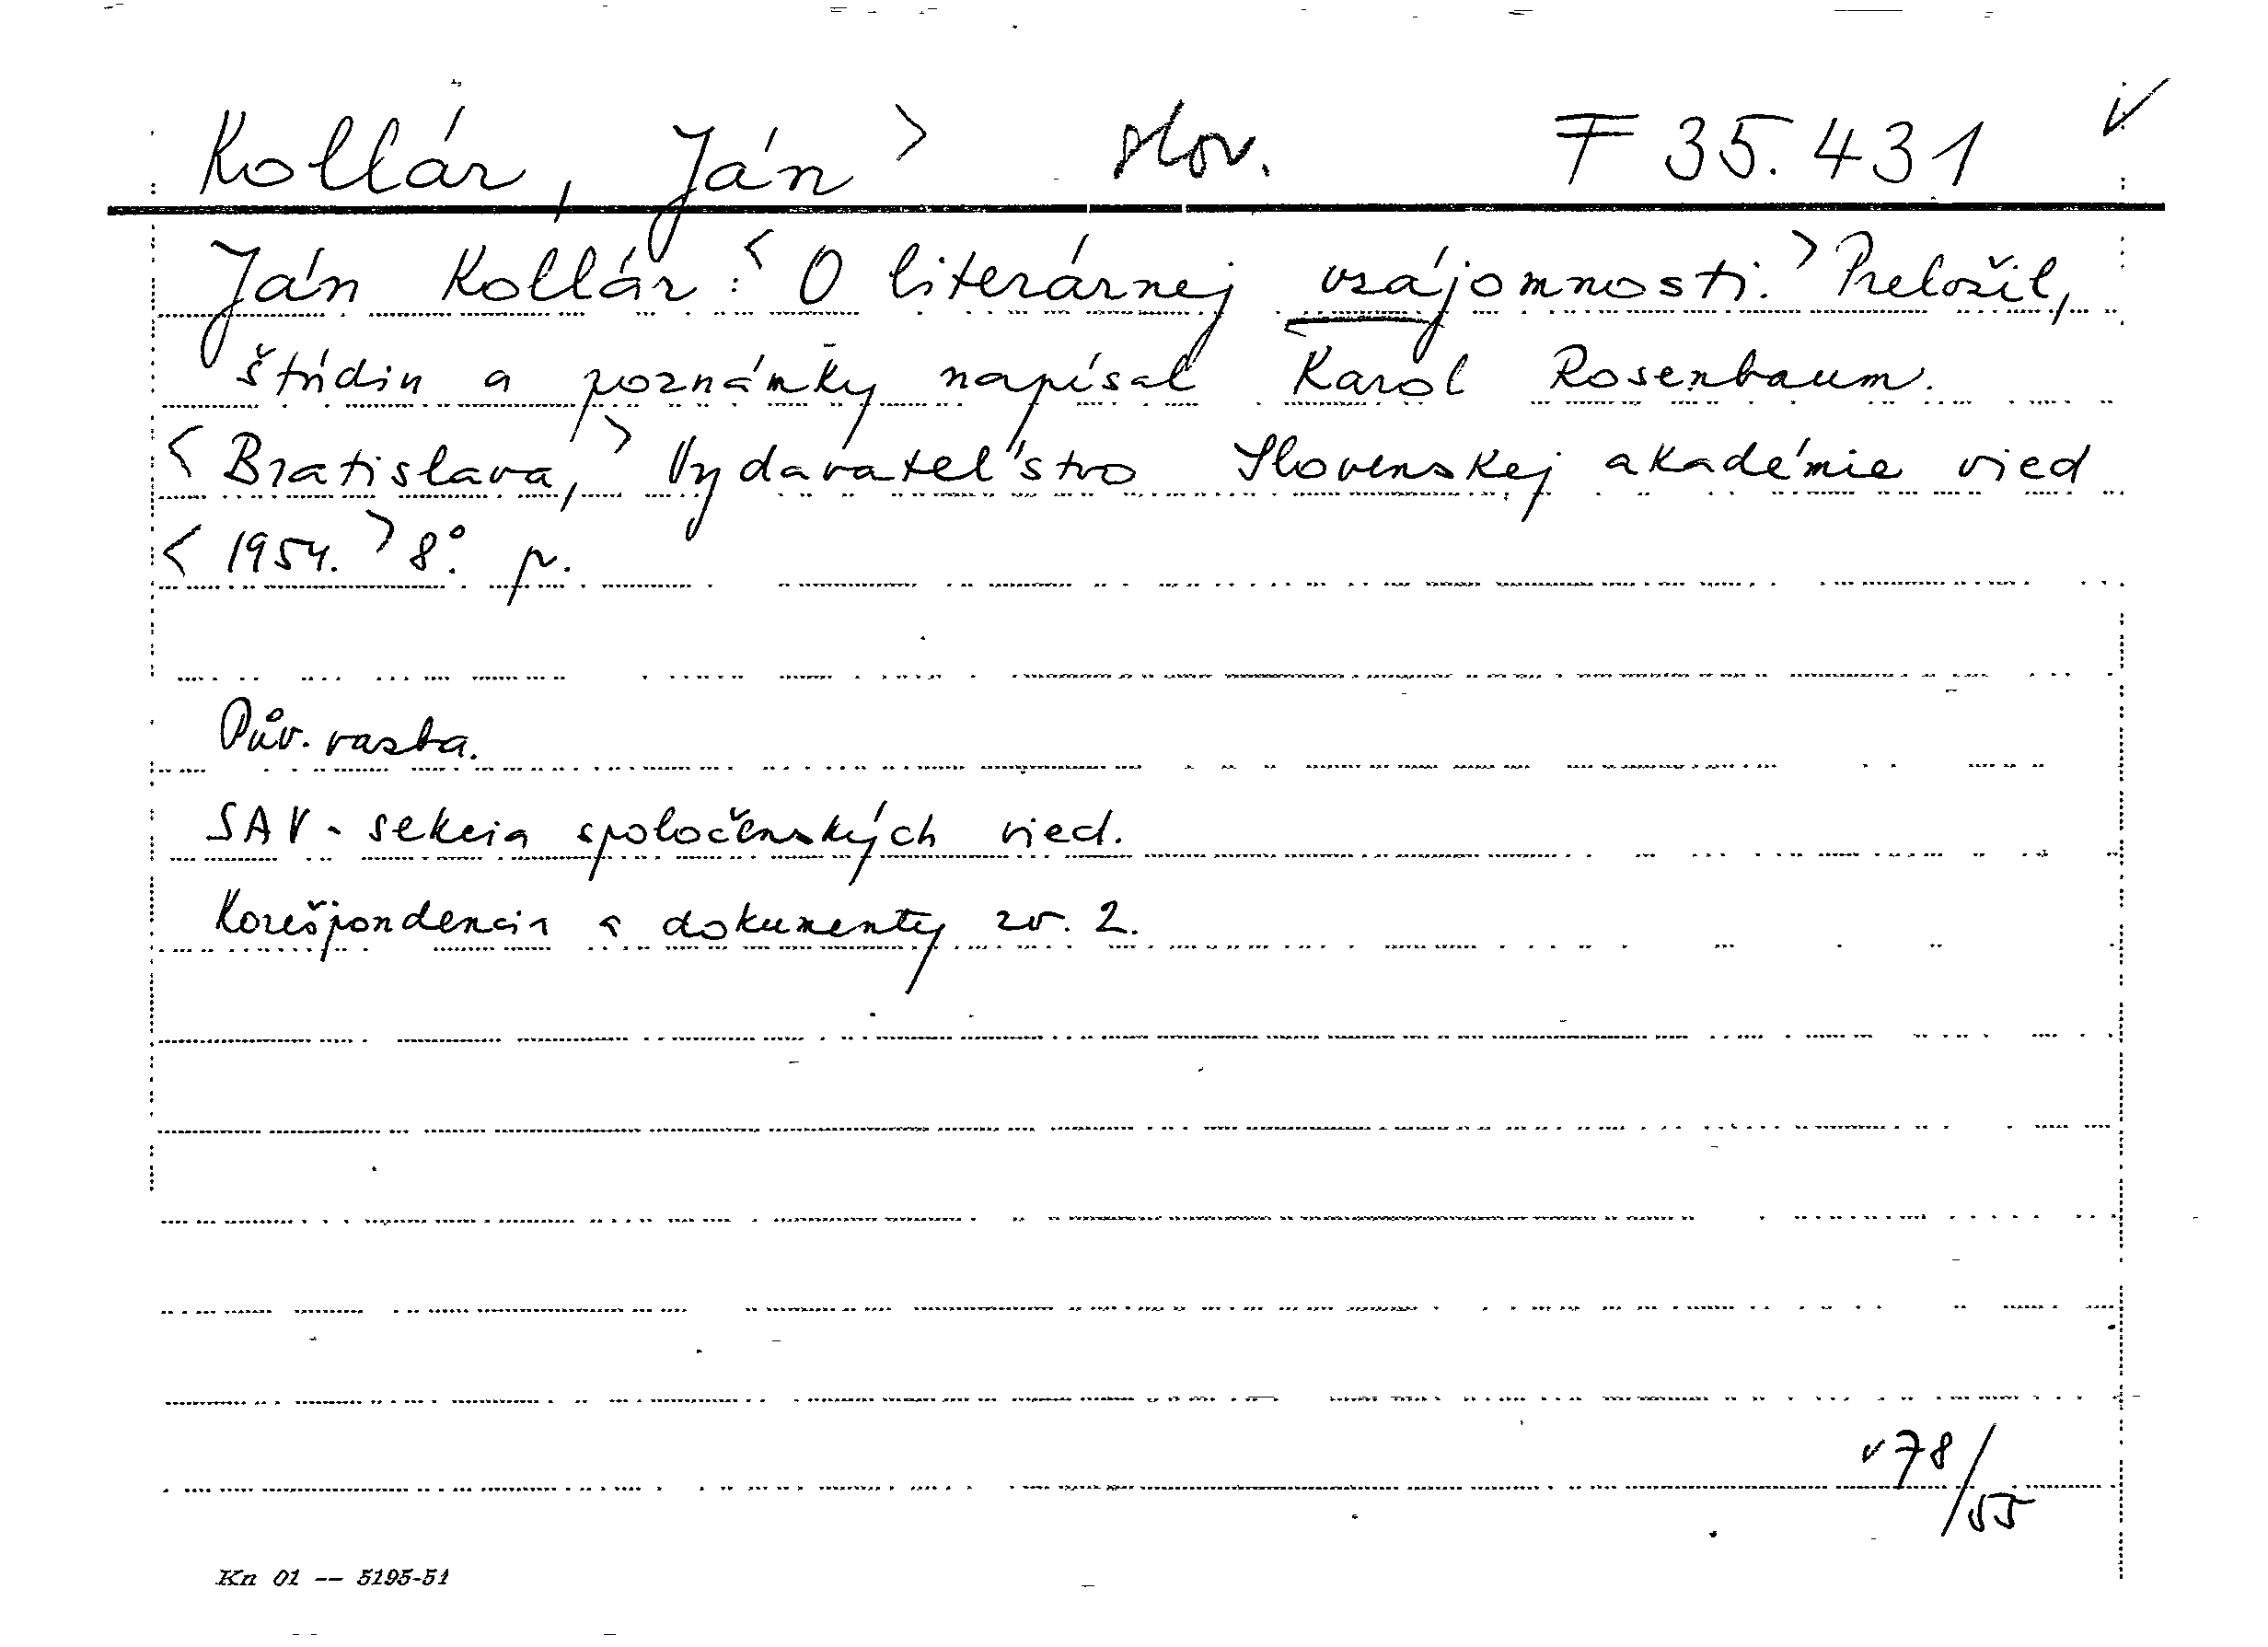 Kollár, Ján > slov. F 35.431 √
Ján Kollár: < O literárnej vzájomnosti. > Preložil,
štúdiu a poznámky napísal Karol Rosenbaum.
< Bratislava, > Vydavateľstvo Slovenskej akadémie vied
< 1954. > 8°. p.
Pův. vazba.
SAV - sekcia spoločenských vied.
Korešpondencia a dokumenty zv. 2.
v 78/55
Kn 01 -- 5195-51